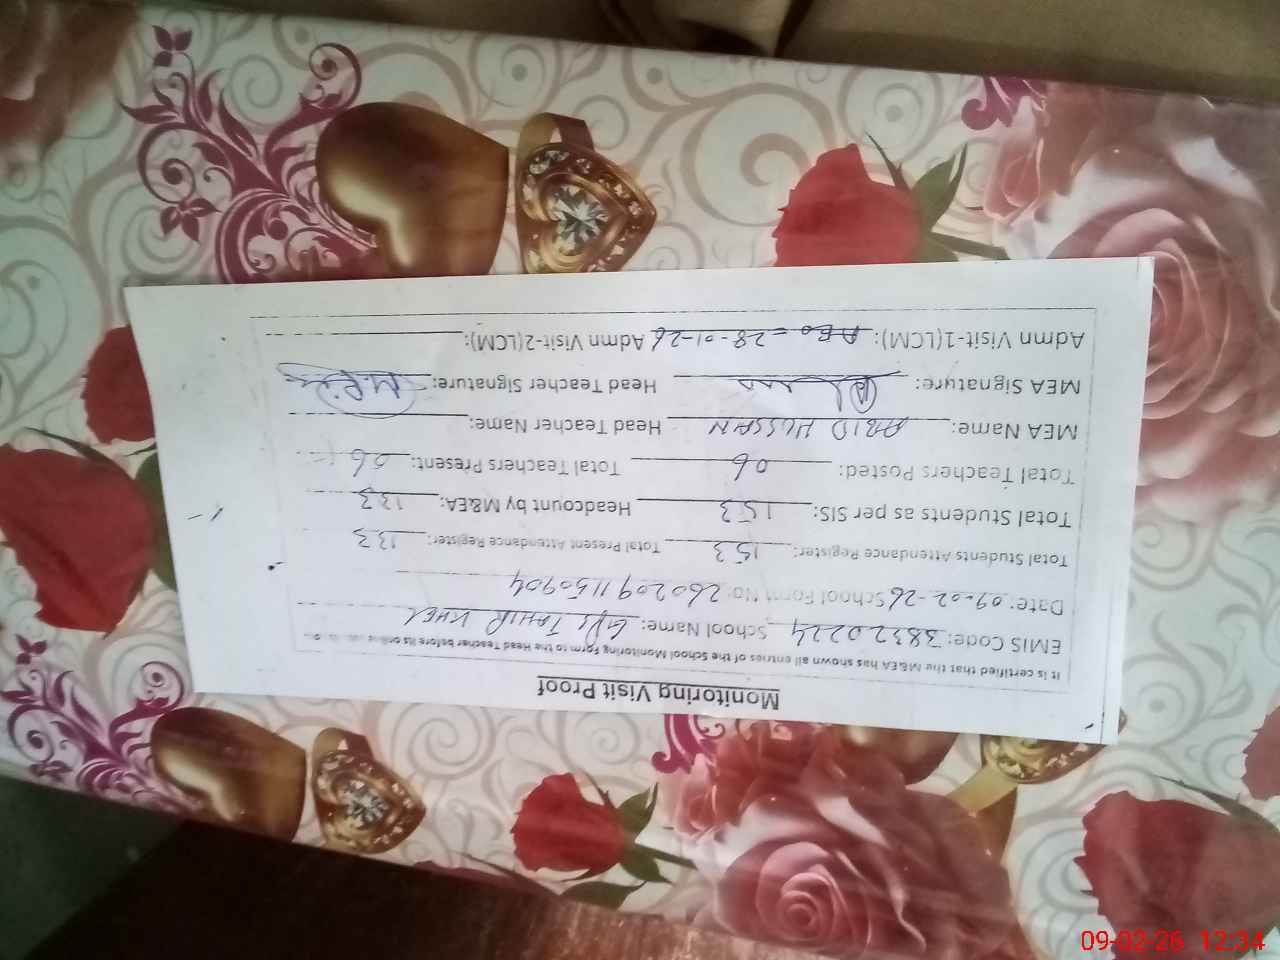 Monitoring Visit Proof
It is certified that the M&EA has shown all entries of the School Monitoring Form to the Head Teacher before its online
EMIS Code: 38320224 School Name: GPS TAHIR KHEL
Date: 09-02-26 School Form No: 26020911150904
Total Students Attendance Register: 153 Total Present Attendant Register: 133
Total Students as per SIS: 153 Headcount by M&EA: 133
Total Teachers Posted: 06 Total Teachers Present: 06
MEA Name: ABID HUSSAN Head Teacher Name:
MEA Signature: Head Teacher Signature:
Admn Visit-1(LCM): AEO = 28-01-26 Admn Visit-2(LCM):
09-02-26 12:34